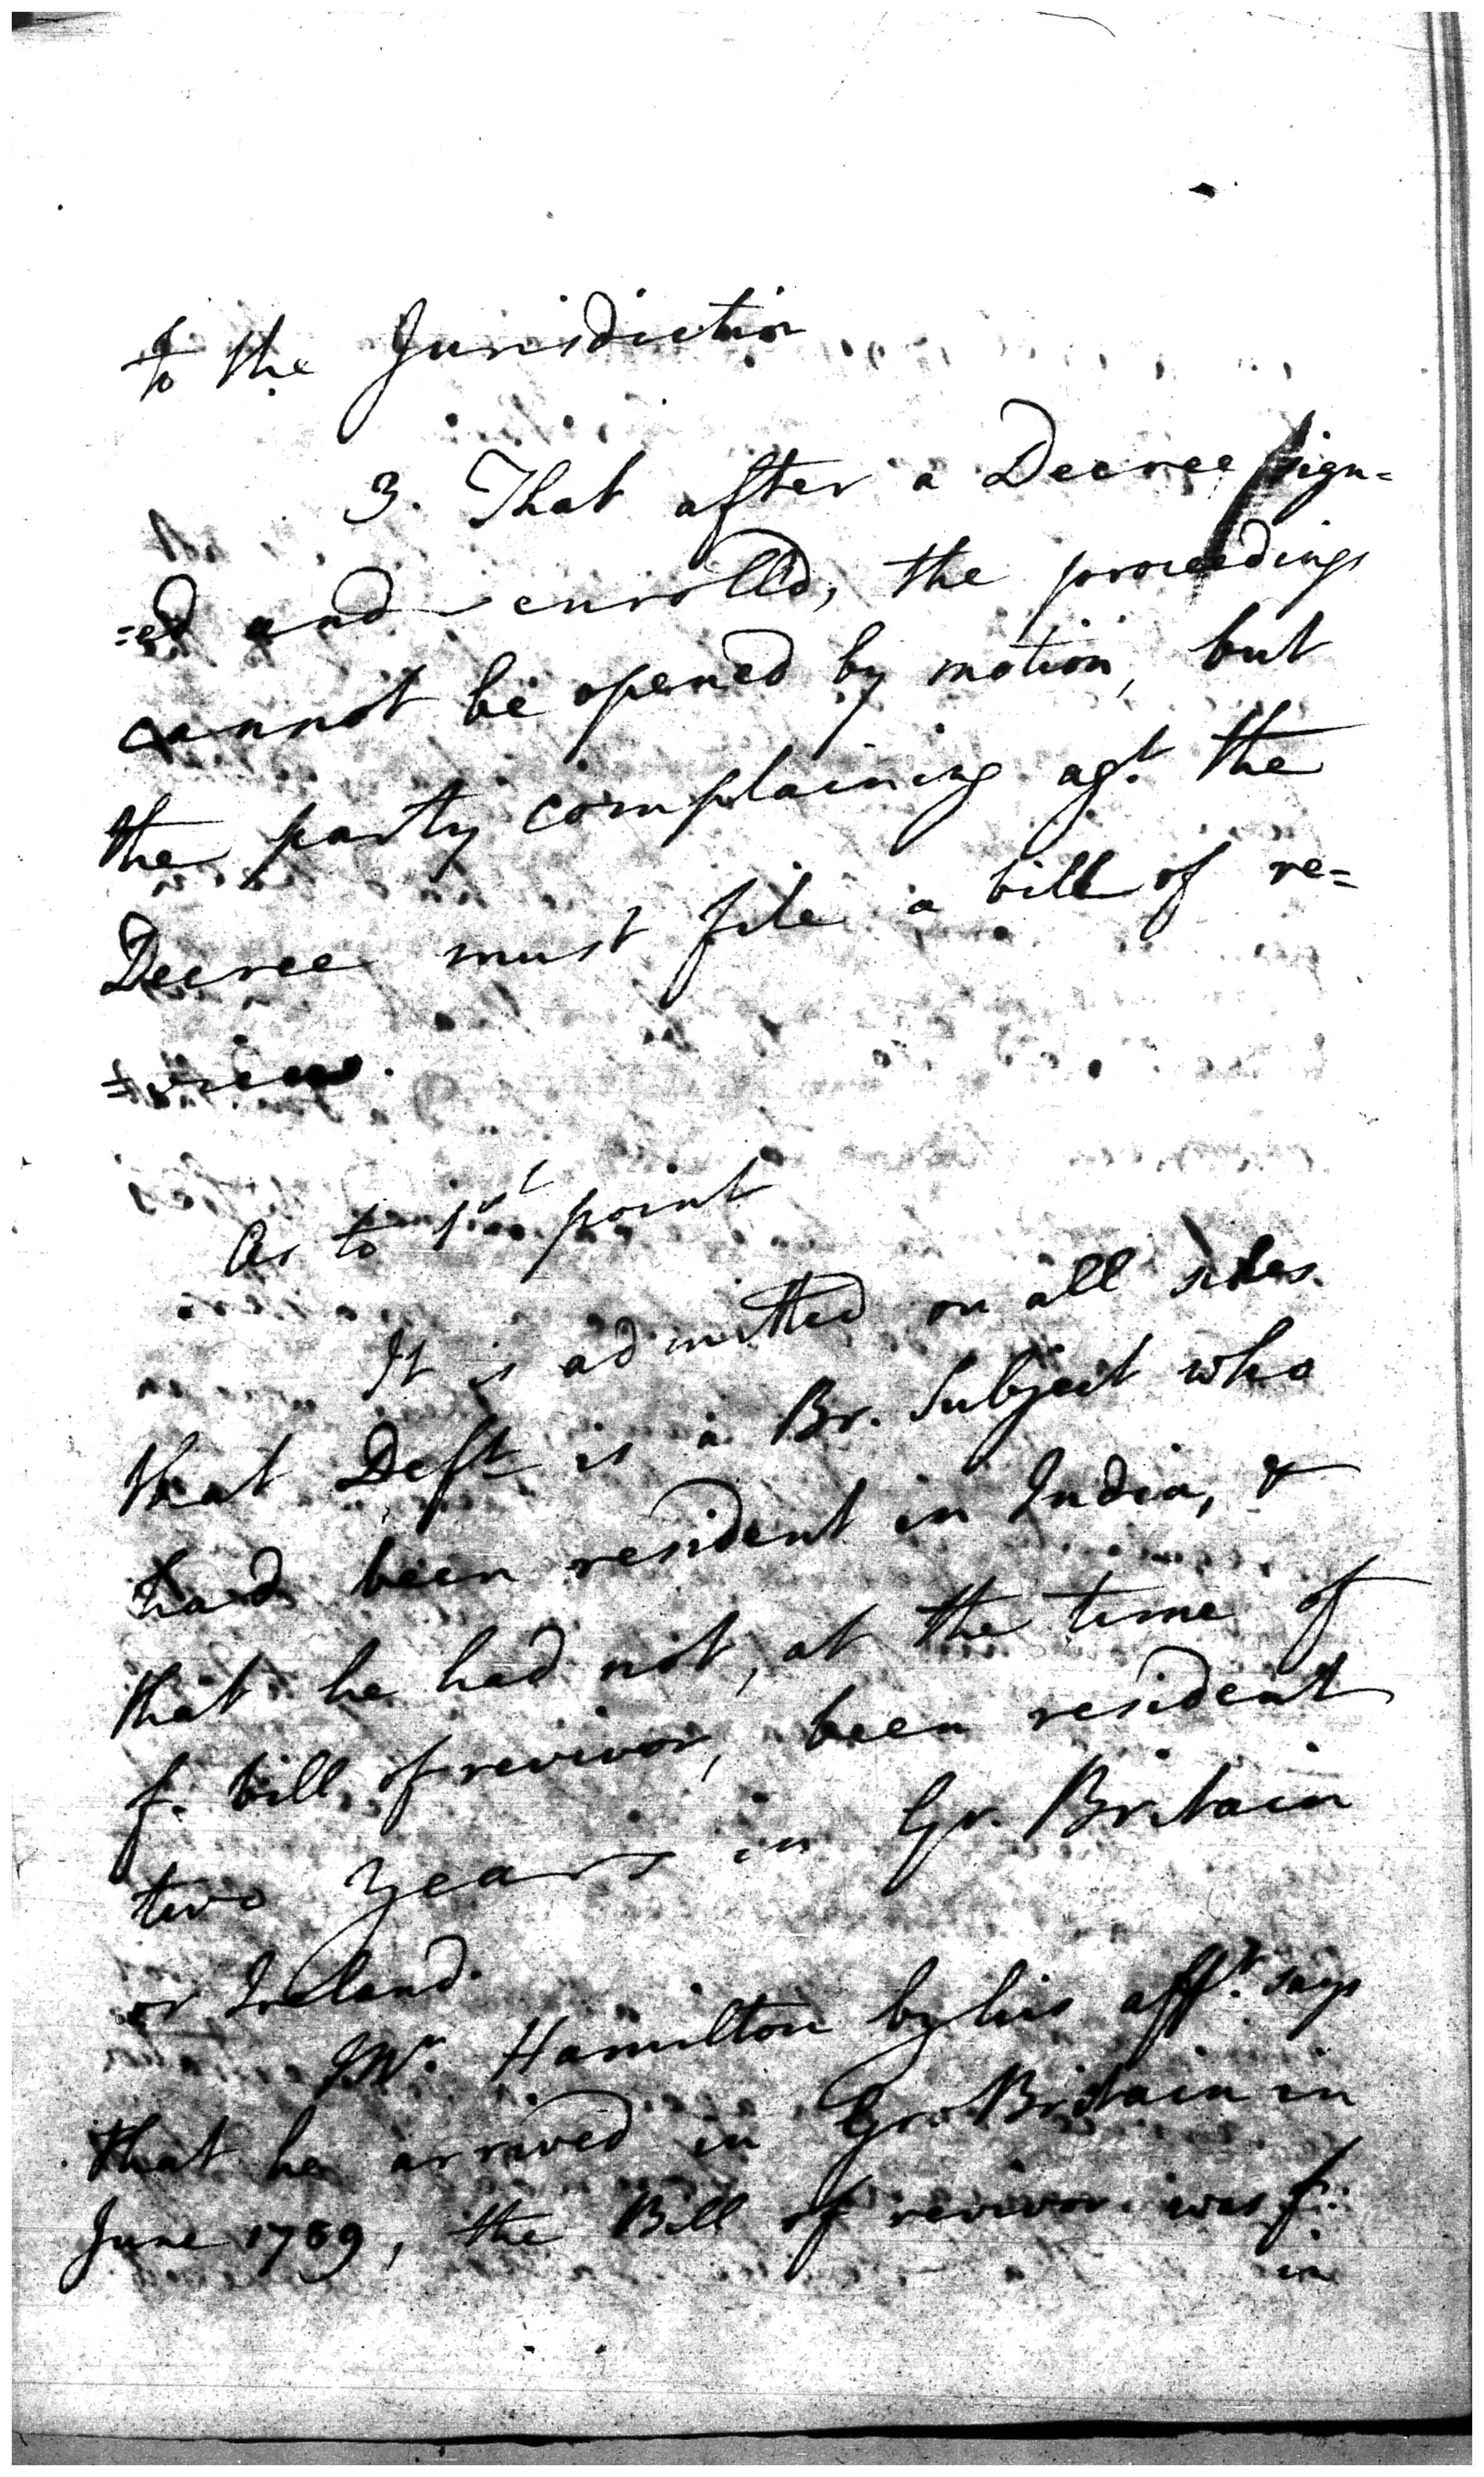 to the Jurisdiction
3. That after a Decree sign=
=ed and enrolld, the proceedings
cannot be opened by motion, but
the party complaining agt. the
Decree must file a bill of re=
=view.
As to 1st point
It is admitted on all sides
that Deft is a Br. Subject who
had been resident in India, &
that he had not, at the time of
f. bill of revivor, been resident
two years in Gr. Britain
or Ireland.
Mr. Hamilton by his afft. says
that he arrived in Gr. Britain in
June 1789, the Bill of revivor was f.
in